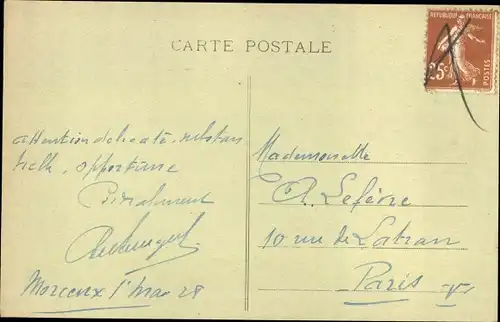 CARTE POSTALE
RÉPUBLIQUE FRANÇAISE
25c
POSTES
attention délicate, substan
tielle, opportune
Cordialement
Morcenx 1er mai 28
Mademoiselle
A. Lefèvre
10 rue de Latran
Paris V